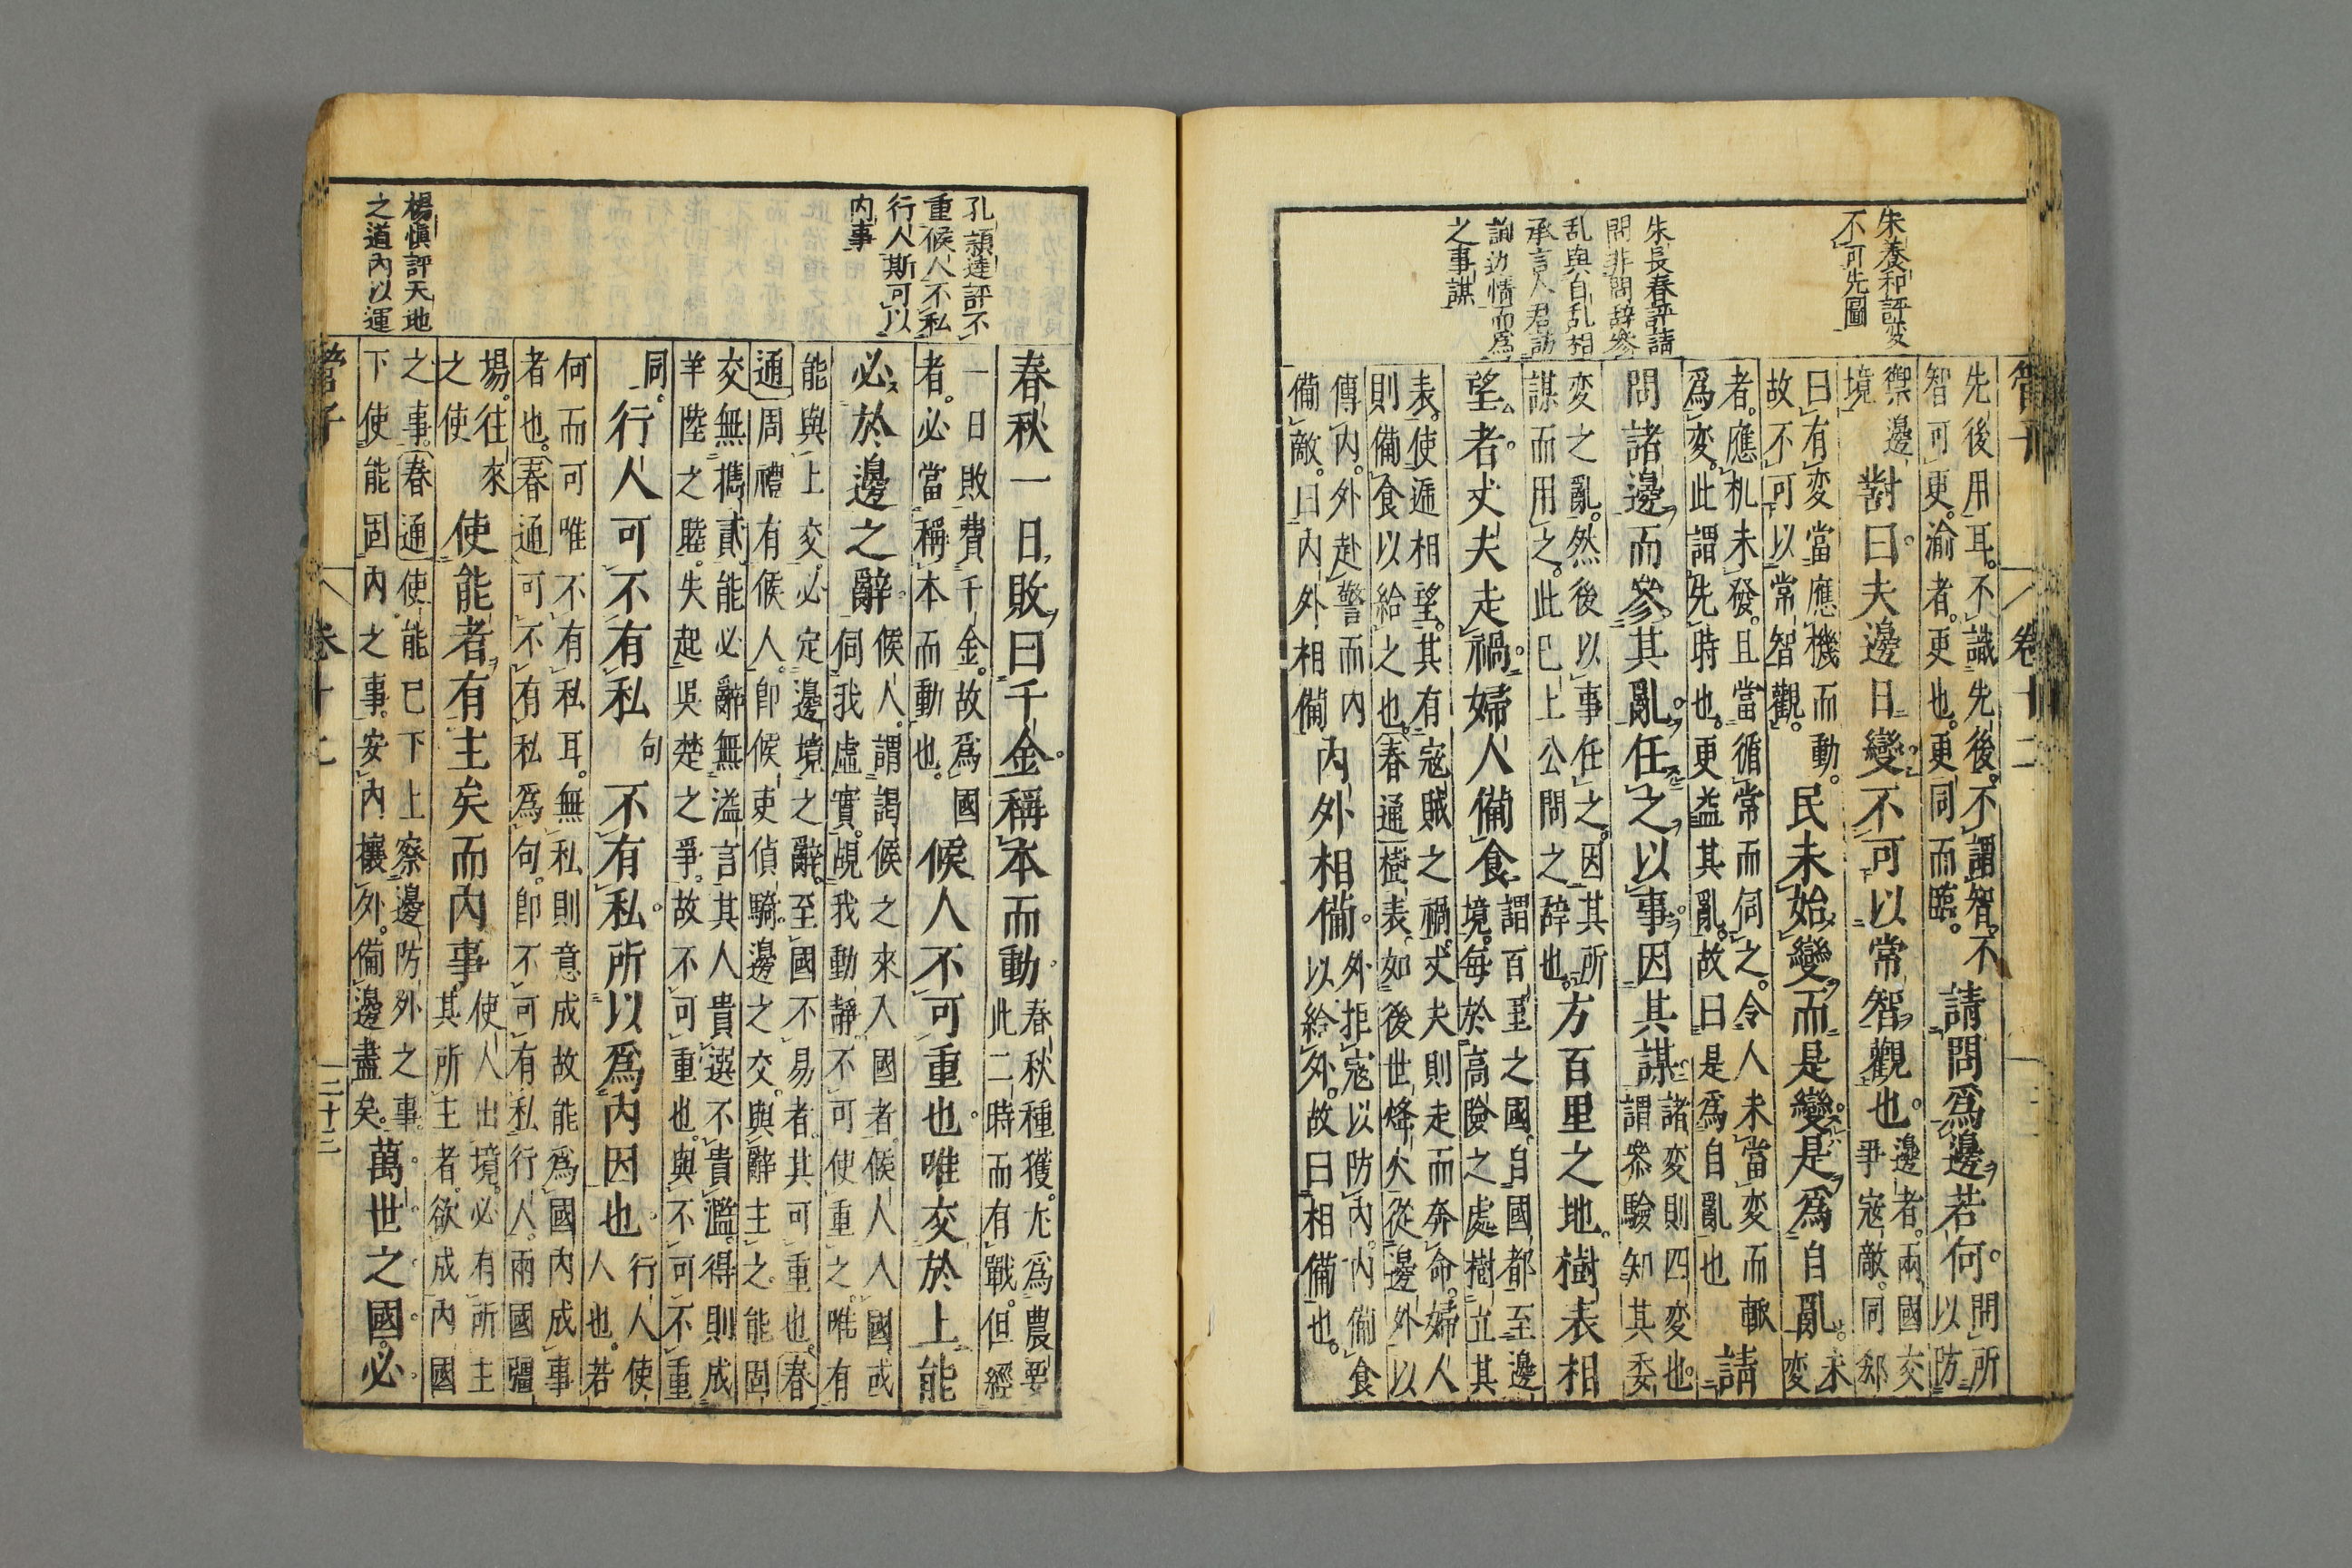 朱養和評変
不可先圖
朱長春評請
問非問辞参
乱與自乱相
承言人君訪
詢边情而爲
之事謀
管子 卷十二
先後用耳。不識先後。不謂智。不
智可更。渝者。更也。更同而臨。
請問爲邊若何。
問所
以防
禦邊
境
對曰。夫邊日變。不可以常智觀也。
邊者。兩國交
爭寇敵。同郄
曰有変當應機而動。
故不可以常智觀。
民未始變而是變。是爲自亂。
未
変
者。應机未發。且當循常而伺之。令人未當変而輙
爲変。此謂先時也。更益其亂。故曰是爲自亂也
請
問諸邊而參其亂。任之以事。因其謀。
諸変則四変也。
謂参驗知其委
変之亂。然後以事任之。因其所
謀而用之。此已上公問之辞也。
方百里之地。樹表相
望者。丈夫走禍。婦人備食。
謂百里之國。自國都至邊
境。每於高險之處樹立其
表。使遞相望。其有寇賊之禍。丈夫則走而奔命。婦人
則備食以給之也。春通樹表。如後世烽火從邊外以
傳內。外赴警而內
備敵。曰内外相備
内外相備。
外拒寇以防內。内備食
以給外。故曰相備也。
孔頴達評不
重候人不私
行人斯可以
内事
楊愼評天地
之道內以運
春秋一日。敗曰千金。稱本而動。
春秋種獲。尤爲農要
此二時而有戰。但經
一日敗費千金。故爲國
者。必當稱本而動也。
候人不可重也。唯交於上能
必於邊之辭。
候人。謂謁候之來入國者。候人入國或
伺我虛實。覘我動靜。不可使重之。唯有
能與上交。必定邊境之辭。至國不易者。其可重也。春
通周禮有候人。卽候吏偵騎。邊之交。與辭主之。能固
交無攜貳。能必辭無溢言其人貴選不貴濫。得則成
羊陸之睦。失起吳楚之爭。故不可重也。與不可不重
同。
行人可不有私
句
不有私。所以爲内因也。
行人使
人也。若
何而可唯不有私耳。無私則意成故能爲國內成事
者也。春通可不有私爲句。卽不可有私行人。兩國疆
場。往來
之使
使能者有主矣而内事
使人出境。必有所主
其所主者。欲成内國
之事。春通使能已下上察邊防外之事。
下使能固内之事。安内攘外。備邊盡矣。
萬世之國。必
管子 卷十二 二十三